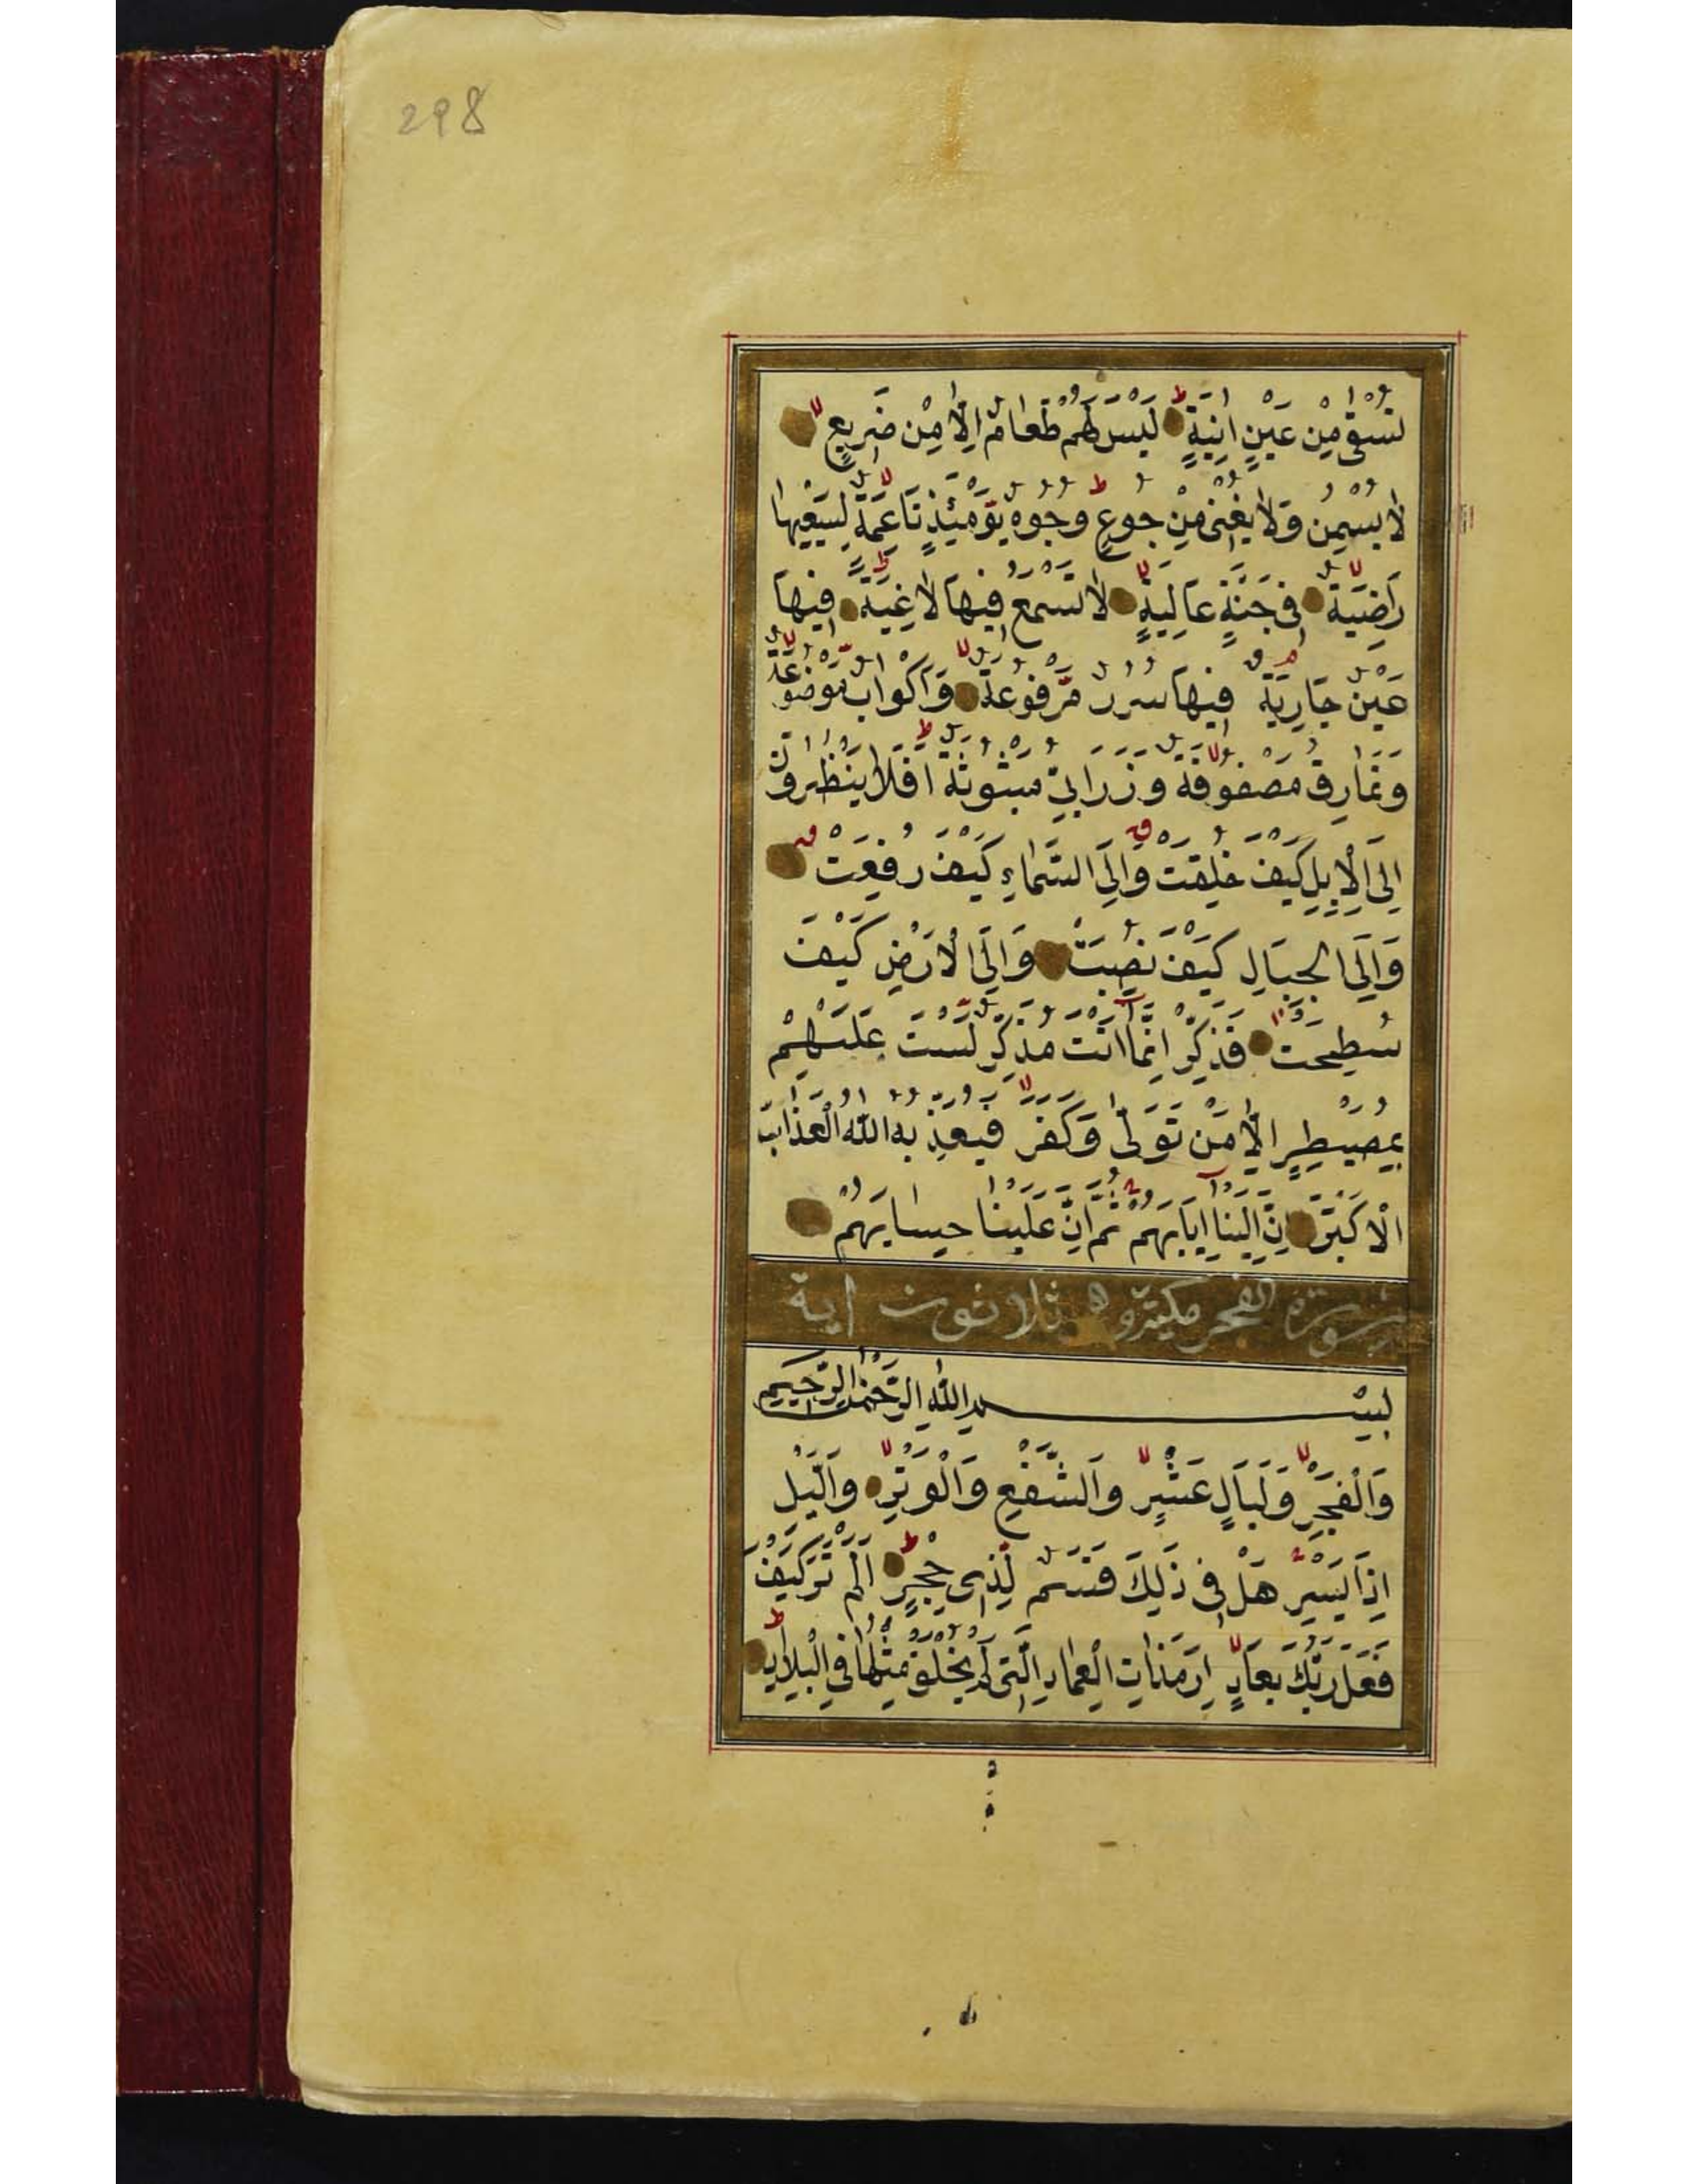 298
تُسْقٰى مِنْ عَيْنٍ اٰنِيَةٍ لَيْسَ لَهُمْ طَعَامٌ اِلَّا مِنْ ضَرِيعٍ
لَا يُسْمِنُ وَلَا يُغْنٖى مِنْ جُوعٍ وُجُوهٌ يَوْمَئِذٍ نَاعِمَةٌ لِسَعْيِهَا
رَاضِيَةٌ فٖى جَنَّةٍ عَالِيَةٍ لَا تَسْمَعُ فٖيهَا لَاغِيَةً فٖيهَا
عَيْنٌ جَارِيَةٌ فٖيهَا سُرُرٌ مَرْفُوعَةٌ وَاَكْوَابٌ مَوْضُوعَةٌ
وَنَمَارِقُ مَصْفُوفَةٌ وَزَرَابِىُّ مَبْثُوثَةٌ اَفَلَا يَنْظُرُونَ
اِلَى الْاِبِلِ كَيْفَ خُلِقَتْ وَاِلَى السَّمَاءِ كَيْفَ رُفِعَتْ
وَاِلَى الْجِبَالِ كَيْفَ نُصِبَتْ وَاِلَى الْاَرْضِ كَيْفَ
سُطِحَتْ فَذَكِّرْ اِنَّمَا اَنْتَ مُذَكِّرٌ لَسْتَ عَلَيْهِمْ
بِمُصَيْطِرٍ اِلَّا مَنْ تَوَلّٰى وَكَفَرَ فَيُعَذِّبُهُ اللّٰهُ الْعَذَابَ
الْاَكْبَرَ اِنَّ اِلَيْنَا اِيَابَهُمْ ثُمَّ اِنَّ عَلَيْنَا حِسَابَهُمْ
سورة الفجر مكية وهى ثلاثون اية
بِسْمِ اللّٰهِ الرَّحْمٰنِ الرَّحِيمِ
وَالْفَجْرِ وَلَيَالٍ عَشْرٍ وَالشَّفْعِ وَالْوَتْرِ وَالَّيْلِ
اِذَا يَسْرِ هَلْ فٖى ذٰلِكَ قَسَمٌ لِذٖى حِجْرٍ اَلَمْ تَرَ كَيْفَ
فَعَلَ رَبُّكَ بِعَادٍ اِرَمَ ذَاتِ الْعِمَادِ الَّتٖى لَمْ يُخْلَقْ مِثْلُهَا فِى الْبِلَادِ